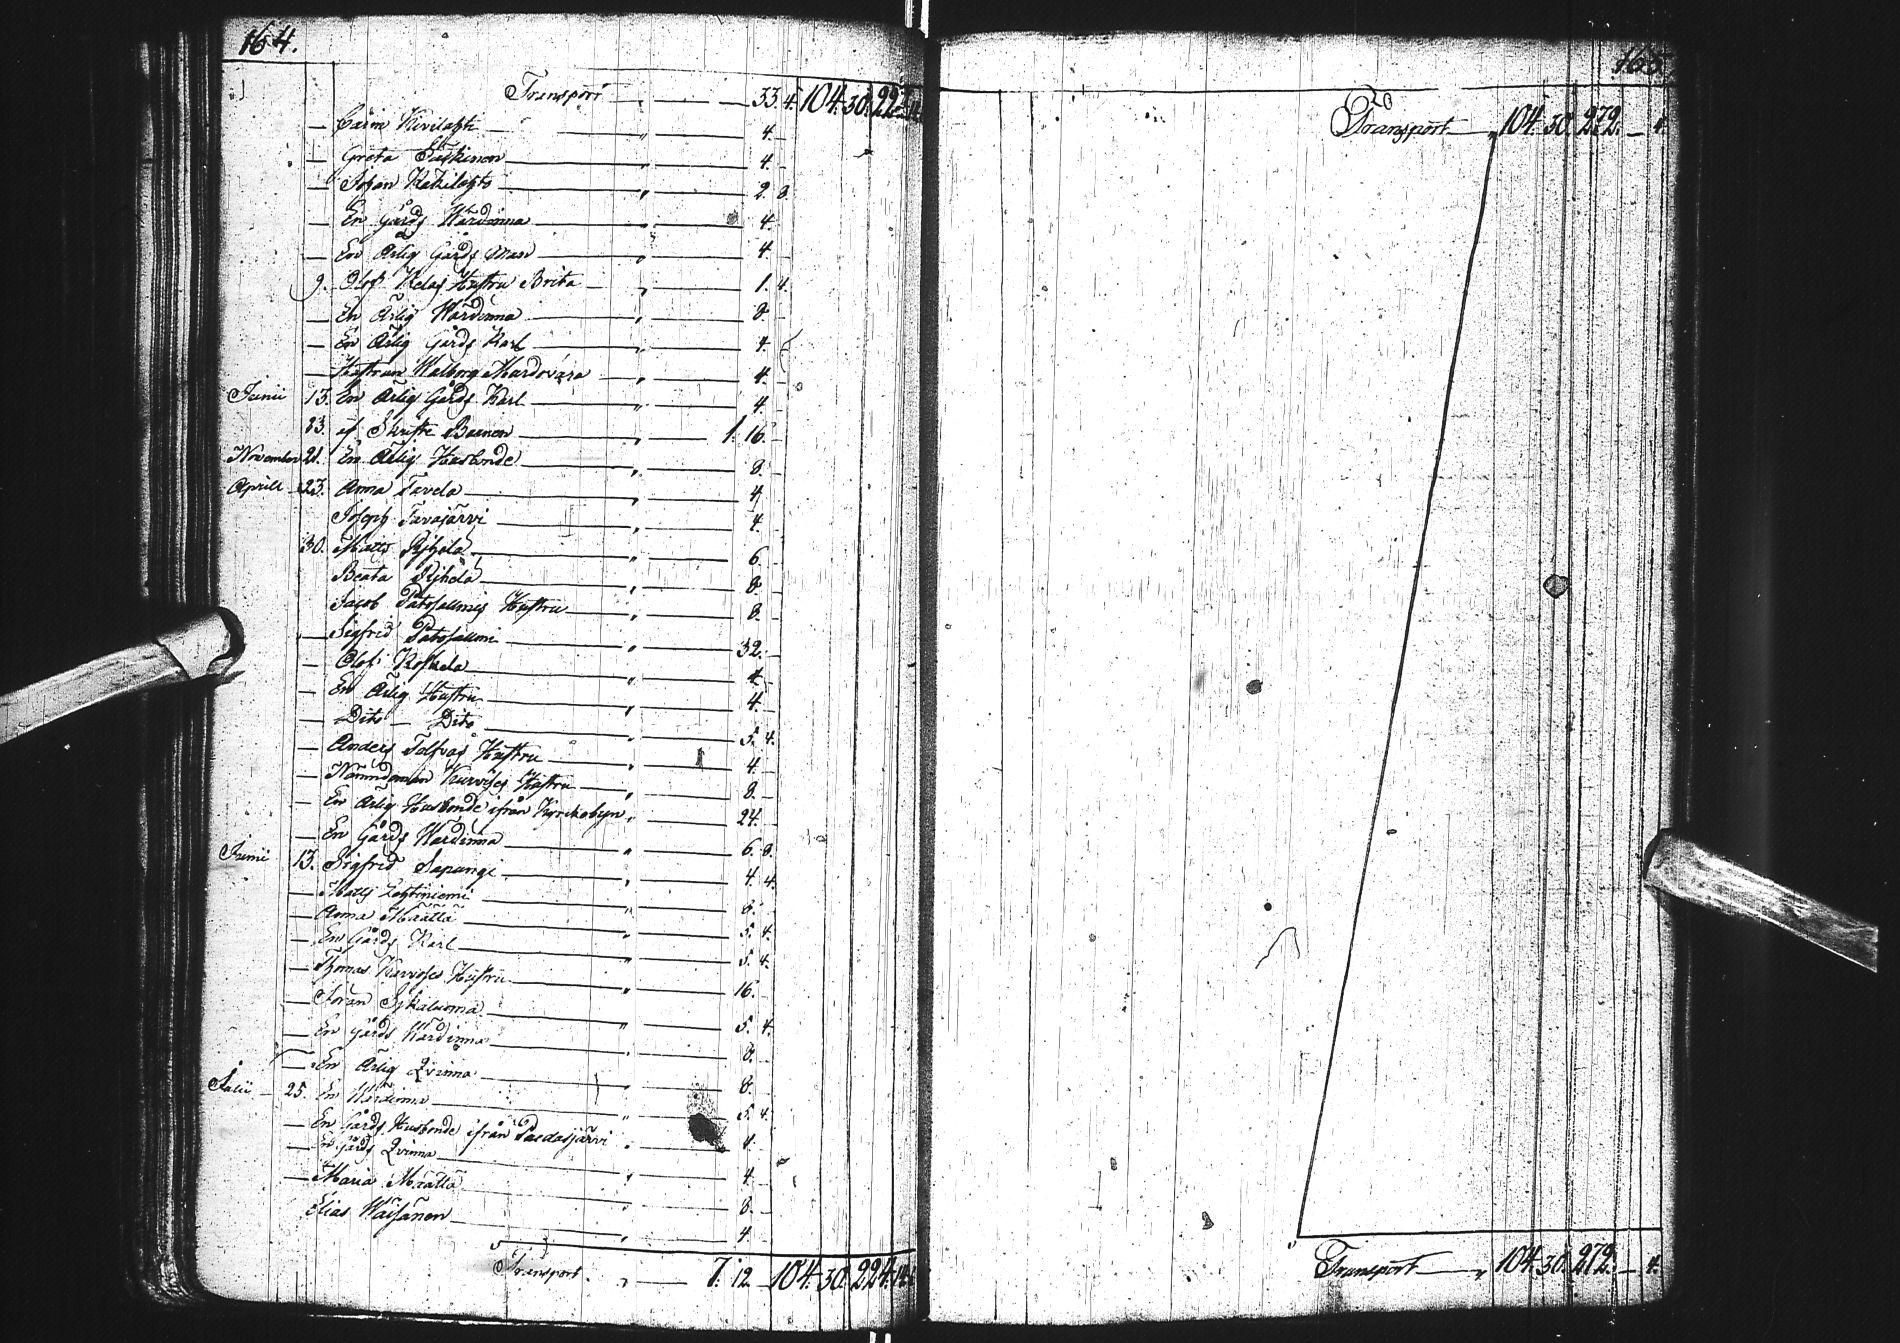 164.
Transport „ 33. 4. 104. 30. 22
— Carin Kivilahti „ 4. —
— Greta „ 4. —
— Johan „ 2. 8.
— En Gårds Wärdinna „ 4. —
— En Ärlig Gårds Man „ 4. —
9. Olof Kelas Hustru Brita „ 1. 4.
— En Ärlig Wärdinna „ 8. —
— En Ärlig Gårds Karl „ 4. —
— Hustrun Walborg „ 4. —
Junii 13. En Ärlig Gårds Karl „ 4. —
23. af Skrifte Barnen „ 1. 16. —
November 21. En Ärlig Husbonde „ 8. —
Aprill 23. Anna Tavela „ 4. —
Joseph Tavajärvi „ 4. —
30. Matts „ 6. —
Beata „ 8. —
Jacob Patosalmis Hustru „ 8. —
— Sigfrid Patosalmi „ 32. —
— Olof Koskela „ 4. —
— En Ärlig Hustru „ 4. —
— Dito — Dito „ 5. 4.
— Anders Tolfvas Hustru „ 4. —
— Nämndeman Hustru „ 8. —
— En Ärlig Husbonde ifrån Kyrkobyn „ 24. —
— En Gårds Wärdinna „ 6. 8.
Junii 13. Sigfrid Sapungi „ 4. 4.
— Matts Lehtiniemi „ 8. —
— Anna Määttä „ 5. 4.
— En Gårds Karl „ 5. 4.
— Thomas Hustru „ 16. —
— Jöran „ 5. 4.
— En Gårds Wärdinna „ 8. —
— En Ärlig Qvinna „ 8. —
Julii 25. En Wärdinna „ 5. 4.
— En Gårds Husbonde ifrån Paedasjärvi „ 4. —
— En Gårds Qvinna „ 4. —
— Maria Määttä „ 8. —
Elias Wäisänen „ 4. —
Transport „ 7. 12 104. 30. 224. 14
165.
Transport „ 104. 30. 272. — 4.
Transport „ 104. 30. 272. — 4.